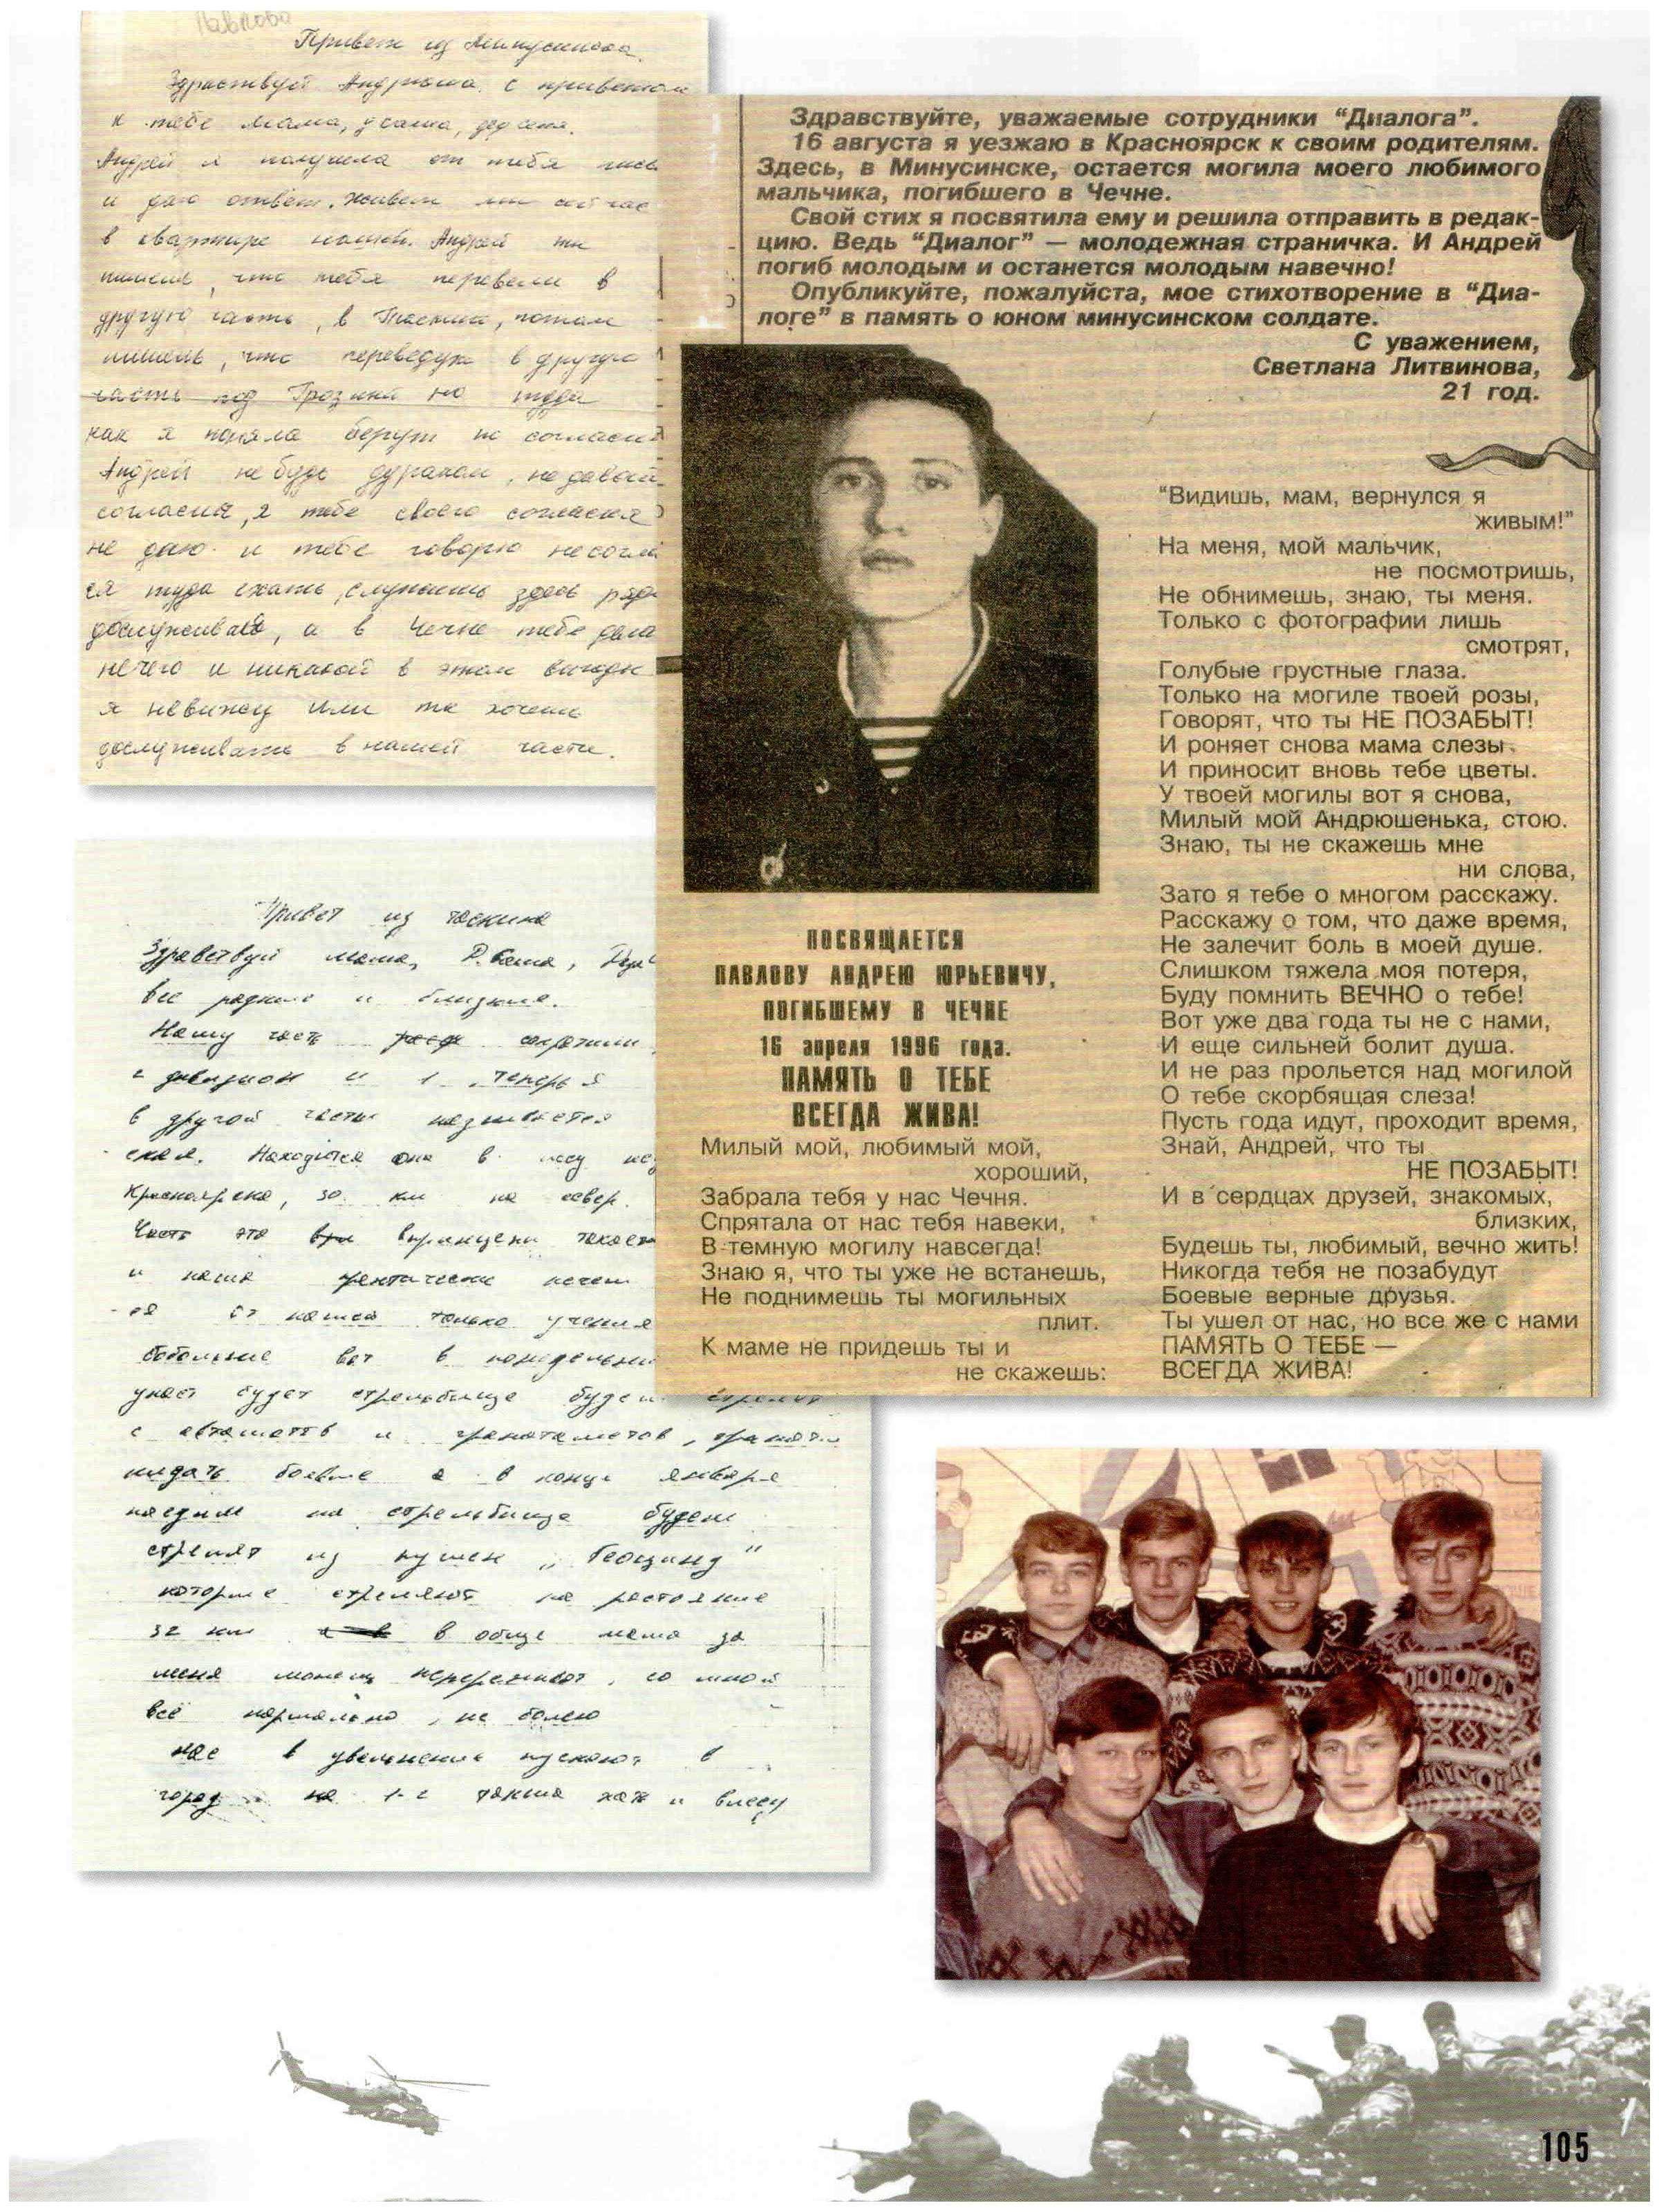 Привет из Минусинска.
Здраствуй Андрюша, с приветом
к тебе мама,
Андрей я получила от тебя
и даю ответ. Живем мы сейчас
в квартире нашей. Андрей ты
пишешь, что тебя перевели в
другую часть, в Таскино, потом
пишешь, что переведут в другую
часть под Грозный но туда
как я поняла берут по согласию
Андрей не будь дураком, не давай
согласия, я тебе своего согласия
не даю и тебе говорю
туда ехать, служить здесь
дослуживай, а в Чечне тебе дела
нечего и никакой в этом выгоды
я невижу или ты хочешь
дослуживать в нашей части.
Здравствуйте, уважаемые сотрудники "Диалога".
16 августа я уезжаю в Красноярск к своим родителям.
Здесь, в Минусинске, остается могила моего любимого
мальчика, погибшего в Чечне.
Свой стих я посвятила ему и решила отправить в редак-
цию. Ведь "Диалог" — молодежная страничка. И Андрей
погиб молодым и останется молодым навечно!
Опубликуйте, пожалуйста, мое стихотворение в "Диа-
логе" в память о юном минусинском солдате.
С уважением,
Светлана Литвинова,
21 год.
ПОСВЯЩАЕТСЯ
ПАВЛОВУ АНДРЕЮ ЮРЬЕВИЧУ,
ПОГИБШЕМУ В ЧЕЧНЕ
16 апреля 1996 года.
ПАМЯТЬ О ТЕБЕ
ВСЕГДА ЖИВА!
Милый мой, любимый мой,
хороший,
Забрала тебя у нас Чечня.
Спрятала от нас тебя навеки,
В темную могилу навсегда!
Знаю я, что ты уже не встанешь,
Не поднимешь ты могильных
плит.
К маме не придешь ты и
не скажешь:
"Видишь, мам, вернулся я
живым!"
На меня, мой мальчик,
не посмотришь,
Не обнимешь, знаю, ты меня.
Только с фотографии лишь
смотрят,
Голубые грустные глаза.
Только на могиле твоей розы,
Говорят, что ты НЕ ПОЗАБЫТ!
И роняет снова мама слезы
И приносит вновь тебе цветы.
У твоей могилы вот я снова,
Милый мой Андрюшенька, стою.
Знаю, ты не скажешь мне
ни слова,
Зато я тебе о многом расскажу.
Расскажу о том, что даже время,
Не залечит боль в моей душе.
Слишком тяжела моя потеря,
Буду помнить ВЕЧНО о тебе!
Вот уже два года ты не с нами,
И еще сильней болит душа.
И не раз прольется над могилой
О тебе скорбящая слеза!
Пусть года идут, проходит время,
Знай, Андрей, что ты
НЕ ПОЗАБЫТ!
И в сердцах друзей, знакомых,
близких,
Будешь ты, любимый, вечно жить!
Никогда тебя не позабудут
Боевые верные друзья.
Ты ушел от нас, но все же с нами
ПАМЯТЬ О ТЕБЕ —
ВСЕГДА ЖИВА!
Привет из Таскина
Здравствуй мама,
все родные и близкие.
Нашу часть сократили
дивизион и 1. Теперь я
в другой части называется
Находится она в лесу
Красноярска, 30 км на север.
Часть эта
и наша практически ничем
от нашей только учения
вот в понедельник
у нас будет стрельбище будем
с автоматов и гранатаметов,
кидать боевые а в конце января
поедим на стрельбище будем
стрелят из пушек „Геоцинд"
которые стреляют на растояние
32 км в обще мама за
меня можеш непереживат, со мной
всё нормально, не болею
нас в увальнение пускают в
город
105